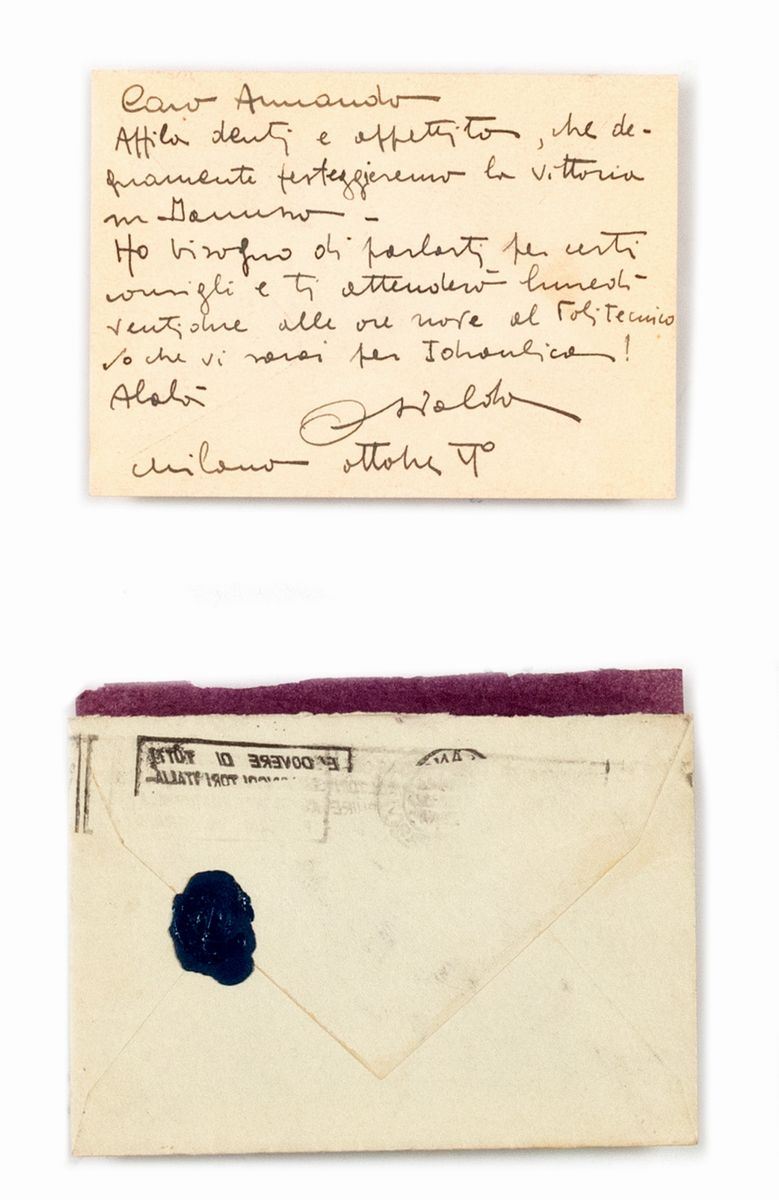 Caro Armando
Affila denti e appetito, che de-
gnamente festeggieremo la vittoria
su -
Ho bisogno di parlarti per certi
consigli e ti attenderò lunedì
ventidue alle ore nove al Politecnico
so che vi sarai per Idraulica!
Alalà
Osvaldo
Milano ottobre VI°
E' DOVERE DI TUTTI
ITALIA